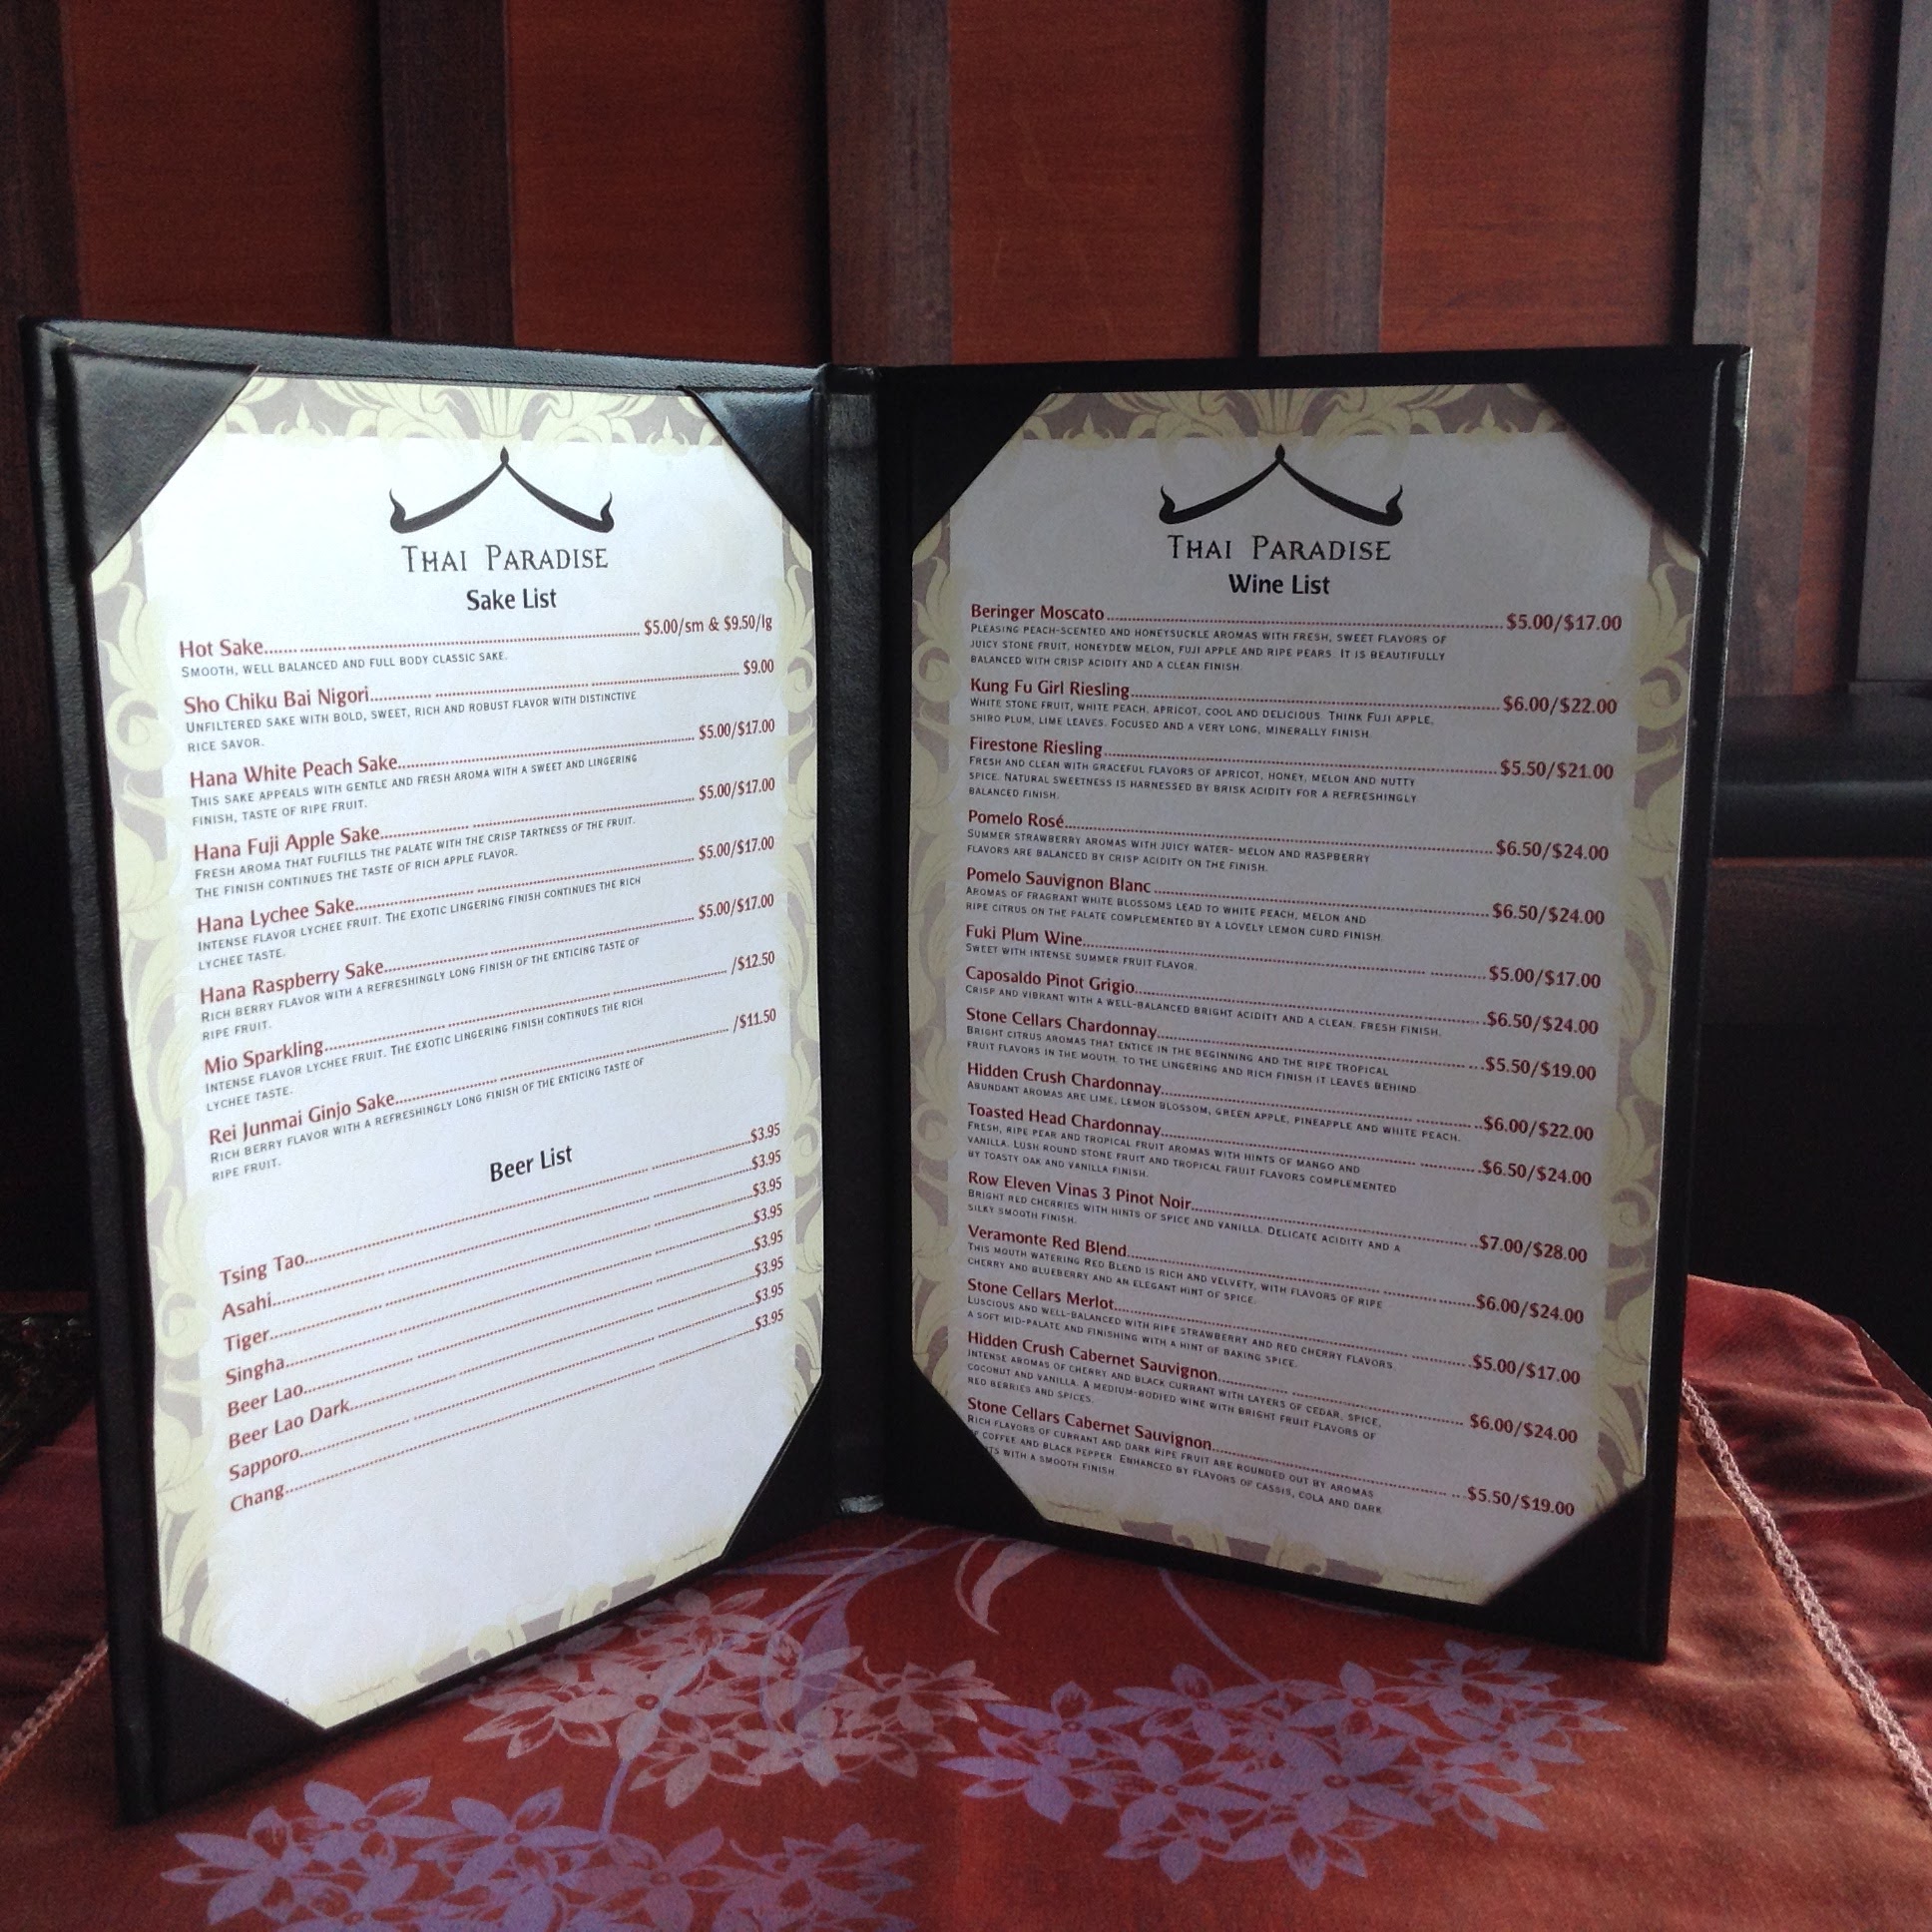 THAI PARADISE
Sake List
Hot Sake.......................... $5.00/sm & $9.50/lg
SMOOTH, WELL BALANCED AND FULL BODY CLASSIC SAKE.
Sho Chiku Bai Nigori.......................... $9.00
UNFILTERED SAKE WITH BOLD, SWEET, RICH AND ROBUST FLAVOR WITH DISTINCTIVE
RICE SAVOR.
Hana White Peach Sake.......................... $5.00/$17.00
THIS SAKE APPEALS WITH GENTLE AND FRESH AROMA WITH A SWEET AND LINGERING
FINISH, TASTE OF RIPE FRUIT.
Hana Fuji Apple Sake.......................... $5.00/$17.00
FRESH AROMA THAT FULFILLS THE PALATE WITH THE CRISP TARTNESS OF THE FRUIT.
THE FINISH CONTINUES THE TASTE OF RICH APPLE FLAVOR.
Hana Lychee Sake.......................... $5.00/$17.00
INTENSE FLAVOR LYCHEE FRUIT. THE EXOTIC LINGERING FINISH CONTINUES THE RICH
LYCHEE TASTE.
Hana Raspberry Sake.......................... $5.00/$17.00
RICH BERRY FLAVOR WITH A REFRESHINGLY LONG FINISH OF THE ENTICING TASTE OF
RIPE FRUIT.
Mio Sparkling.......................... /$12.50
INTENSE FLAVOR LYCHEE FRUIT. THE EXOTIC LINGERING FINISH CONTINUES THE RICH
LYCHEE TASTE.
Rei Junmai Ginjo Sake.......................... /$11.50
RICH BERRY FLAVOR WITH A REFRESHINGLY LONG FINISH OF THE ENTICING TASTE OF
RIPE FRUIT.
Beer List
Tsing Tao..........................$3.95
Asahi..........................$3.95
Tiger..........................$3.95
Singha..........................$3.95
Beer Lao..........................$3.95
Beer Lao Dark..........................$3.95
Sapporo..........................$3.95
Chang..........................$3.95
THAI PARADISE
Wine List
Beringer Moscato..........................$5.00/$17.00
PLEASING PEACH-SCENTED AND HONEYSUCKLE AROMAS WITH FRESH, SWEET FLAVORS OF
JUICY STONE FRUIT, HONEYDEW MELON, FUJI APPLE AND RIPE PEARS. IT IS BEAUTIFULLY
BALANCED WITH CRISP ACIDITY AND A CLEAN FINISH.
Kung Fu Girl Riesling..........................$6.00/$22.00
WHITE STONE FRUIT, WHITE PEACH, APRICOT, COOL AND DELICIOUS. THINK FUJI APPLE,
SHIRO PLUM, LIME LEAVES. FOCUSED AND A VERY LONG, MINERALLY FINISH.
Firestone Riesling..........................$5.50/$21.00
FRESH AND CLEAN WITH GRACEFUL FLAVORS OF APRICOT, HONEY, MELON AND NUTTY
SPICE. NATURAL SWEETNESS IS HARNESSED BY BRISK ACIDITY FOR A REFRESHINGLY
BALANCED FINISH.
Pomelo Rosé..........................$6.50/$24.00
SUMMER STRAWBERRY AROMAS WITH JUICY WATER- MELON AND RASPBERRY
FLAVORS ARE BALANCED BY CRISP ACIDITY ON THE FINISH.
Pomelo Sauvignon Blanc..........................$6.50/$24.00
AROMAS OF FRAGRANT WHITE BLOSSOMS LEAD TO WHITE PEACH, MELON AND
RIPE CITRUS ON THE PALATE COMPLEMENTED BY A LOVELY LEMON CURD FINISH.
Fuki Plum Wine..........................$5.00/$17.00
SWEET WITH INTENSE SUMMER FRUIT FLAVOR.
Caposaldo Pinot Grigio..........................$6.50/$24.00
CRISP AND VIBRANT WITH A WELL-BALANCED BRIGHT ACIDITY AND A CLEAN, FRESH FINISH.
Stone Cellars Chardonnay..........................$5.50/$19.00
BRIGHT CITRUS AROMAS THAT ENTICE IN THE BEGINNING AND THE RIPE TROPICAL
FRUIT FLAVORS IN THE MOUTH, TO THE LINGERING AND RICH FINISH IT LEAVES BEHIND.
Hidden Crush Chardonnay..........................$6.00/$22.00
ABUNDANT AROMAS ARE LIME, LEMON BLOSSOM, GREEN APPLE, PINEAPPLE AND WHITE PEACH.
Toasted Head Chardonnay..........................$6.50/$24.00
FRESH, RIPE PEAR AND TROPICAL FRUIT AROMAS WITH HINTS OF MANGO AND
VANILLA. LUSH ROUND STONE FRUIT AND TROPICAL FRUIT FLAVORS COMPLEMENTED
BY TOASTY OAK AND VANILLA FINISH.
Row Eleven Vinas 3 Pinot Noir..........................$7.00/$28.00
BRIGHT RED CHERRIES WITH HINTS OF SPICE AND VANILLA. DELICATE ACIDITY AND A
SILKY SMOOTH FINISH.
Veramonte Red Blend..........................$6.00/$24.00
THIS MOUTH WATERING RED BLEND IS RICH AND VELVETY, WITH FLAVORS OF RIPE
CHERRY AND BLUEBERRY AND AN ELEGANT HINT OF SPICE.
Stone Cellars Merlot..........................$5.00/$17.00
LUSCIOUS AND WELL-BALANCED WITH RIPE STRAWBERRY AND RED CHERRY FLAVORS.
A SOFT MID-PALATE AND FINISHING WITH A HINT OF BAKING SPICE.
Hidden Crush Cabernet Sauvignon..........................$6.00/$24.00
INTENSE AROMAS OF CHERRY AND BLACK CURRANT WITH LAYERS OF CEDAR, SPICE,
COCONUT AND VANILLA. A MEDIUM-BODIED WINE WITH BRIGHT FRUIT FLAVORS OF
RED BERRIES AND SPICES.
Stone Cellars Cabernet Sauvignon..........................$5.50/$19.00
RICH FLAVORS OF CURRANT AND DARK RIPE FRUIT ARE ROUNDED OUT BY AROMAS
COFFEE AND BLACK PEPPER. ENHANCED BY FLAVORS OF CASSIS, COLA AND DARK
WITH A SMOOTH FINISH.